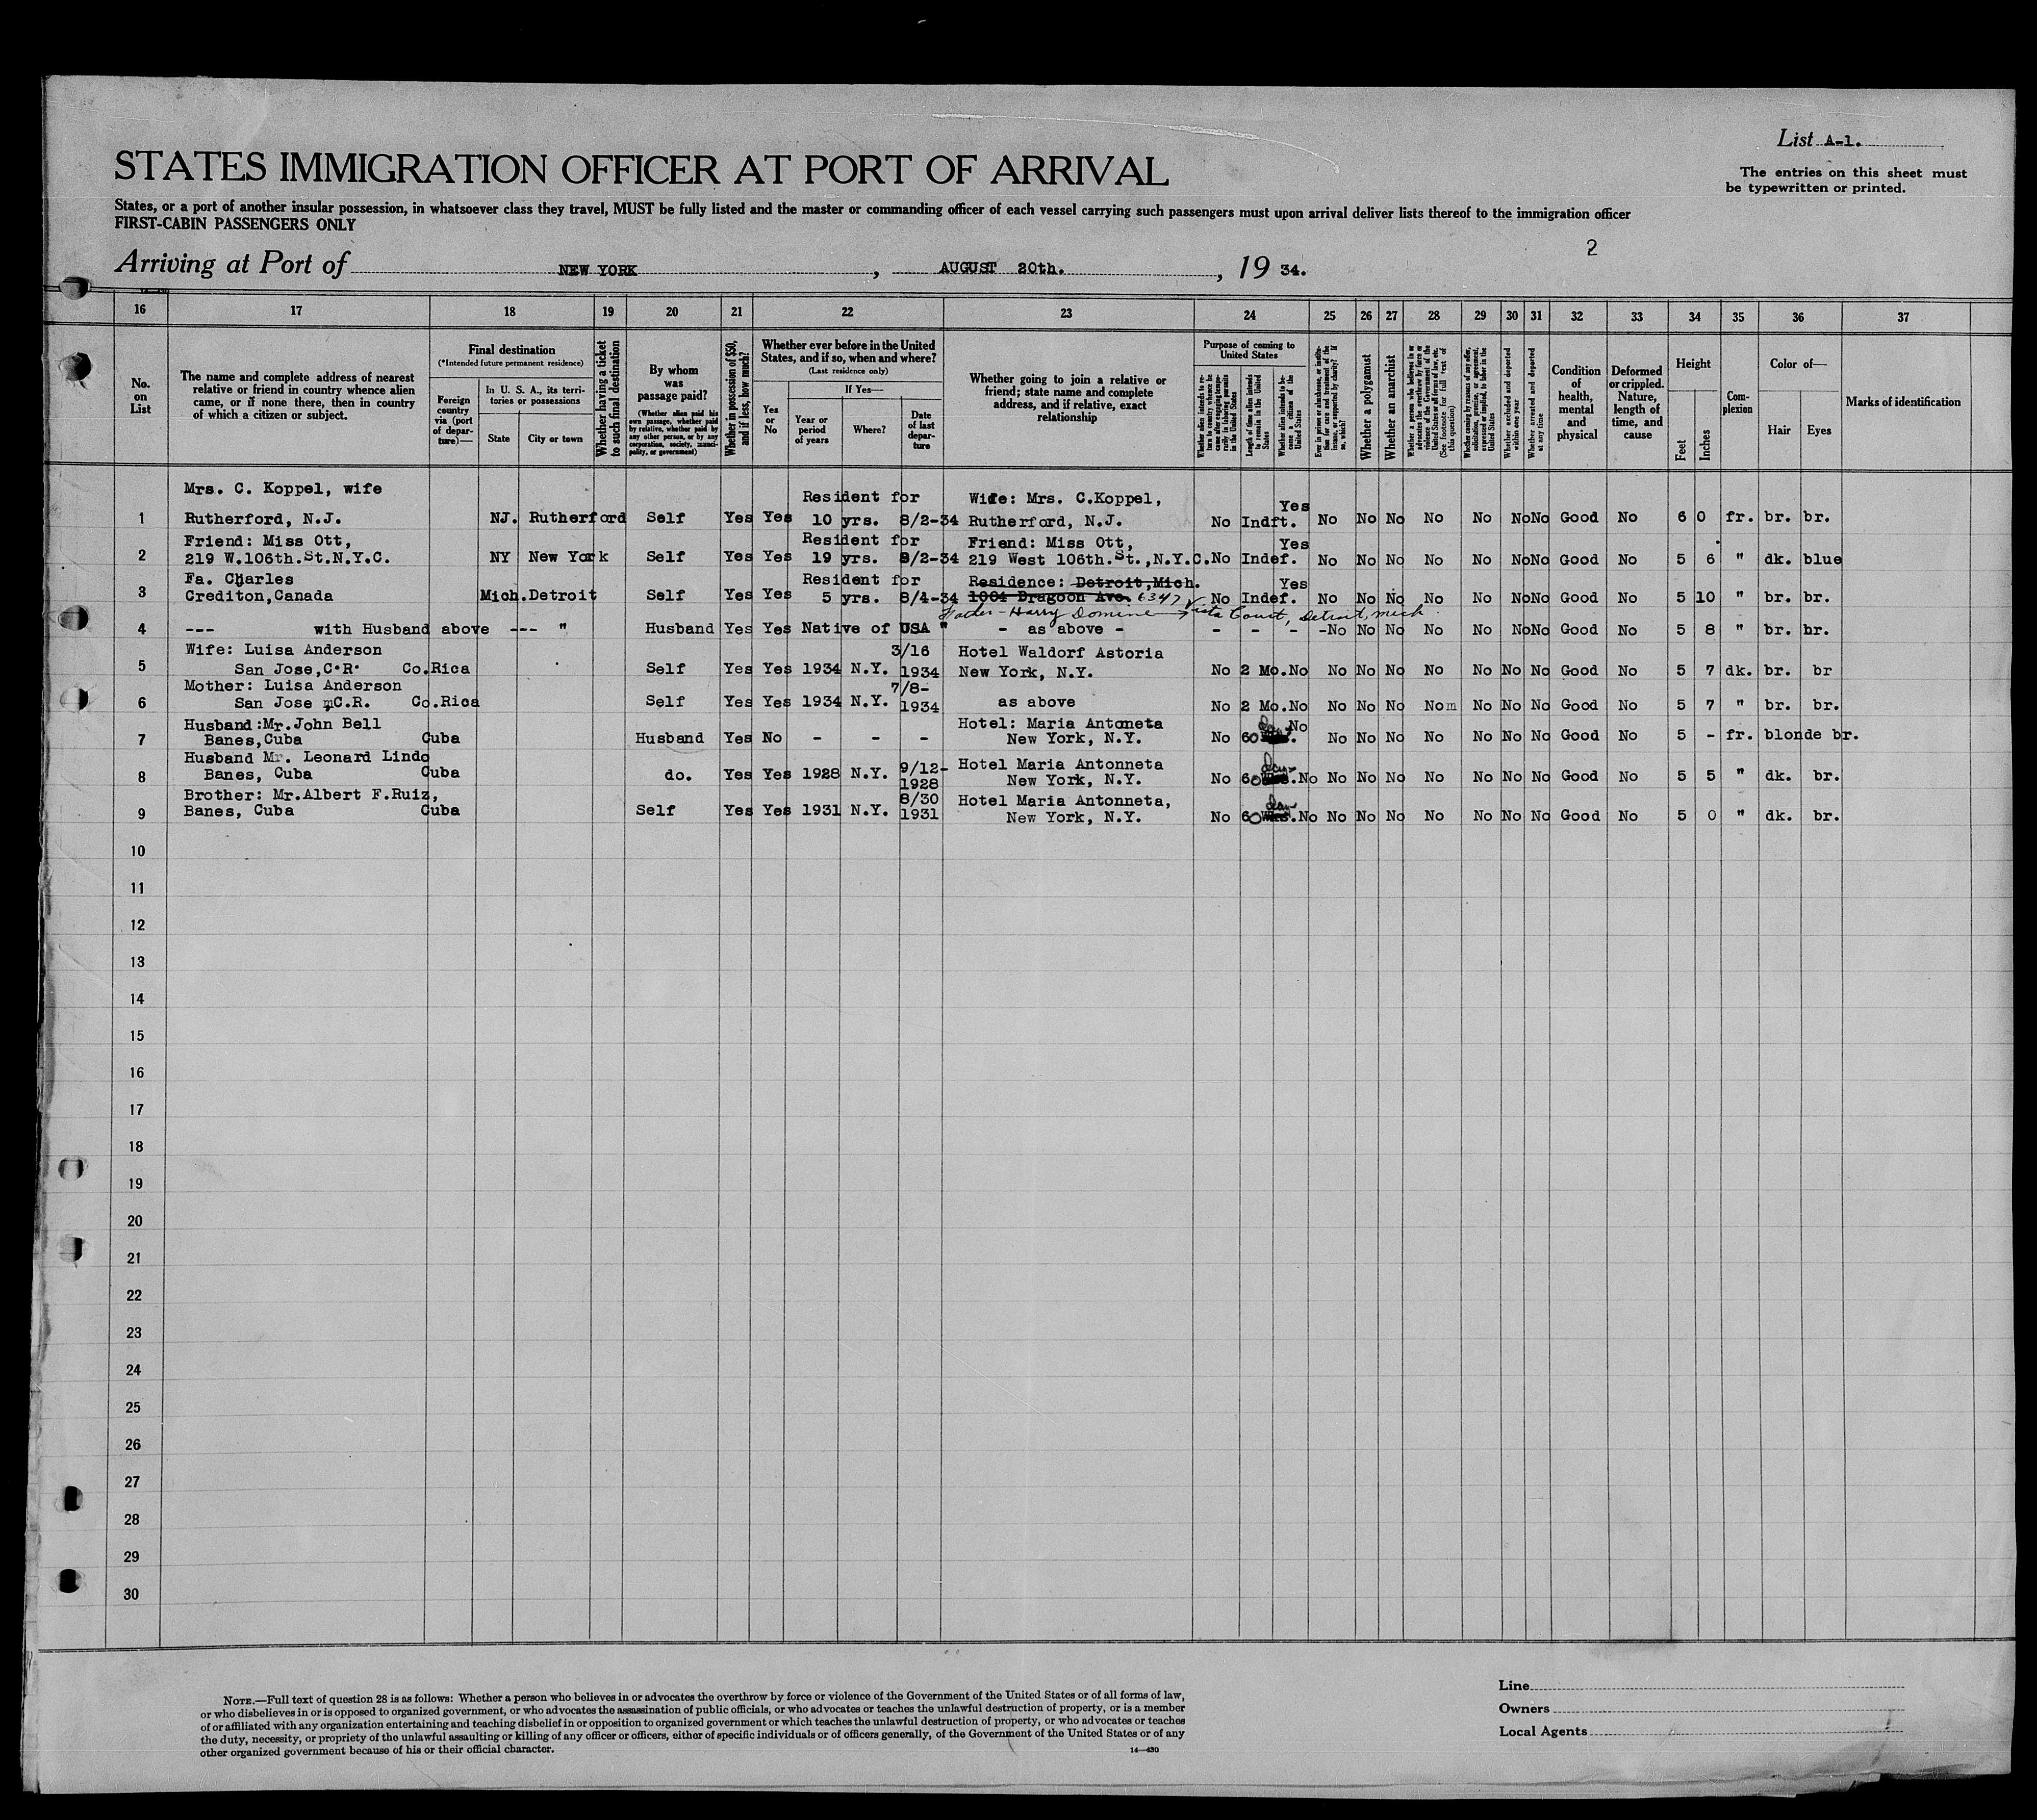 List A-1.
STATES IMMIGRATION OFFICER AT PORT OF ARRIVAL
The entries on this sheet must
be typewritten or printed.
States, or a port of another insular possession, in whatsoever class they travel, MUST be fully listed and the master or commanding officer of each vessel carrying such passengers must upon arrival deliver lists thereof to the immigration officer
FIRST-CABIN PASSENGERS ONLY
2
Arriving at Port of NEW YORK, AUGUST 20th., 19 34.
16 17 18 19 20 21 22 23 24 25 26 27 28 29 30 31 32 33 34 35 36 37
No.
on
List
The name and complete address of nearest
relative or friend in country whence alien
came, or if none there, then in country
of which a citizen or subject.
Final destination
(*Intended future permanent residence)
Foreign
country
via (port
of depar-
ture)—
In U. S. A., its terri-
tories or possessions
State
City or town
Whether having a ticket
to such final destination
By whom
was
passage paid?
(Whether alien paid his
own passage, whether paid
by relative, whether paid by
any other person, or by any
corporation, society, munici-
pality, or government)
Whether in possession of $50,
and if less, how much?
Whether ever before in the United
States, and if so, when and where?
(Last residence only)
Yes
or
No
If Yes—
Year or
period
of years
Where?
Date
of last
depar-
ture
Whether going to join a relative or
friend; state name and complete
address, and if relative, exact
relationship
Purpose of coming to
United States
Whether alien intends to re-
turn to country whence he
came after engaging tempo-
rarily in laboring pursuits
in the United States
Length of time alien intends
to remain in the United
States
Whether alien intends to be-
come a citizen of the
United States
Ever in prison or almshouse, or institu-
tion for care and treatment of the
insane, or supported by charity? If
so, which?
Whether a polygamist
Whether an anarchist
Whether a person who believes in or
advocates the overthrow by force or
violence of the Government of the
United States or all forms of law, etc.
(See footnote for full text of
this question)
Whether coming by reason of any offer,
solicitation, promise, or agreement,
expressed or implied, to labor in the
United States
Whether excluded and deported
within one year
Whether arrested and deported
at any time
Condition
of
health,
mental
and
physical
Deformed
or crippled.
Nature,
length of
time, and
cause
Height
Feet
Inches
Com-
plexion
Color of—
Hair
Eyes
Marks of identification
Mrs. C. Koppel, wife Resident for Wife: Mrs. C.Koppel, Yes
1 Rutherford, N.J. NJ. Rutherford Self Yes Yes 10 yrs. 8/2-34 Rutherford, N.J. No Indft. No No No No No No No Good No 6 0 fr. br. br.
Friend: Miss Ott, Resident for Friend: Miss Ott, Yes
2 219 W.106th.St.N.Y.C. NY New York Self Yes Yes 19 yrs. 8/2-34 219 West 106th.St.,N.Y.C. No Indef. No No No No No No No Good No 5 6 " dk. blue
Fa. Charles Resident for Residence: Detroit,Mich. Yes
3 Crediton,Canada Mich. Detroit Self Yes Yes 5 yrs. 8/4-34 1004 Dragoon Ave. 6347 No Indef. No No No No No No No Good No 5 10 " br. br.
Father - Harry Domine Vista Court, Detroit, Mich.
4 --- with Husband above --- " Husband Yes Yes Native of USA " - as above - - - - -No No No No No No No Good No 5 8 " br. br.
Wife: Luisa Anderson 3/16 Hotel Waldorf Astoria
5 San Jose,C.R. Co.Rica Self Yes Yes 1934 N.Y. 1934 New York, N.Y. No 2 Mo. No No No No No No No No Good No 5 7 dk. br. br
Mother: Luisa Anderson 7/8-
6 San Jose C.R. Co.Rica Self Yes Yes 1934 N.Y. 1934 as above No 2 Mo. No No No No No No No No Good No 5 7 " br. br.
Husband:Mr.John Bell Hotel: Maria Antoneta day No
7 Banes,Cuba Cuba Husband Yes No - - - New York, N.Y. No 60 No No No No No No No Good No 5 - fr. blonde br.
Husband Mr. Leonard Lindo 9/12- Hotel Maria Antonneta days
8 Banes, Cuba Cuba do. Yes Yes 1928 N.Y. 1928 New York, N.Y. No 60 No No No No No No No No Good No 5 5 " dk. br.
Brother: Mr.Albert F.Ruiz, 8/30 Hotel Maria Antonneta, day
9 Banes, Cuba Cuba Self Yes Yes 1931 N.Y. 1931 New York, N.Y. No 60 No No No No No No No No Good No 5 0 " dk. br.
10
11
12
13
14
15
16
17
18
19
20
21
22
23
24
25
26
27
28
29
30
NOTE.—Full text of question 28 is as follows: Whether a person who believes in or advocates the overthrow by force or violence of the Government of the United States or of all forms of law,
or who disbelieves in or is opposed to organized government, or who advocates the assassination of public officials, or who advocates or teaches the unlawful destruction of property, or is a member
of or affiliated with any organization entertaining and teaching disbelief in or opposition to organized government or which teaches the unlawful destruction of property, or who advocates or teaches
the duty, necessity, or propriety of the unlawful assaulting or killing of any officer or officers, either of specific individuals or of officers generally, of the Government of the United States or of any
other organized government because of his or their official character.
14—430
Line
Owners
Local Agents